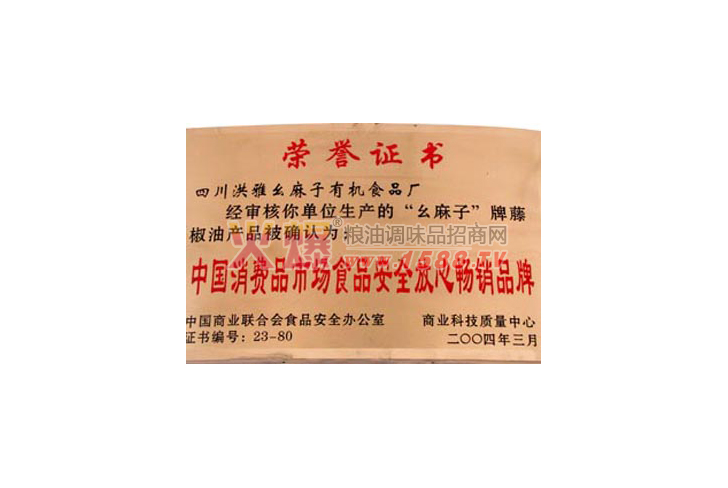 荣誉证书
四川洪雅幺麻子有机食品厂
经审核你单位生产的“幺麻子”牌藤
椒油产品被确认为：
火爆® 粮油调味品招商网
www.1588.TV
中国消费品市场食品安全放心畅销品牌
中国商业联合会食品安全办公室 商业科技质量中心
证书编号：23-80 二〇〇四年三月